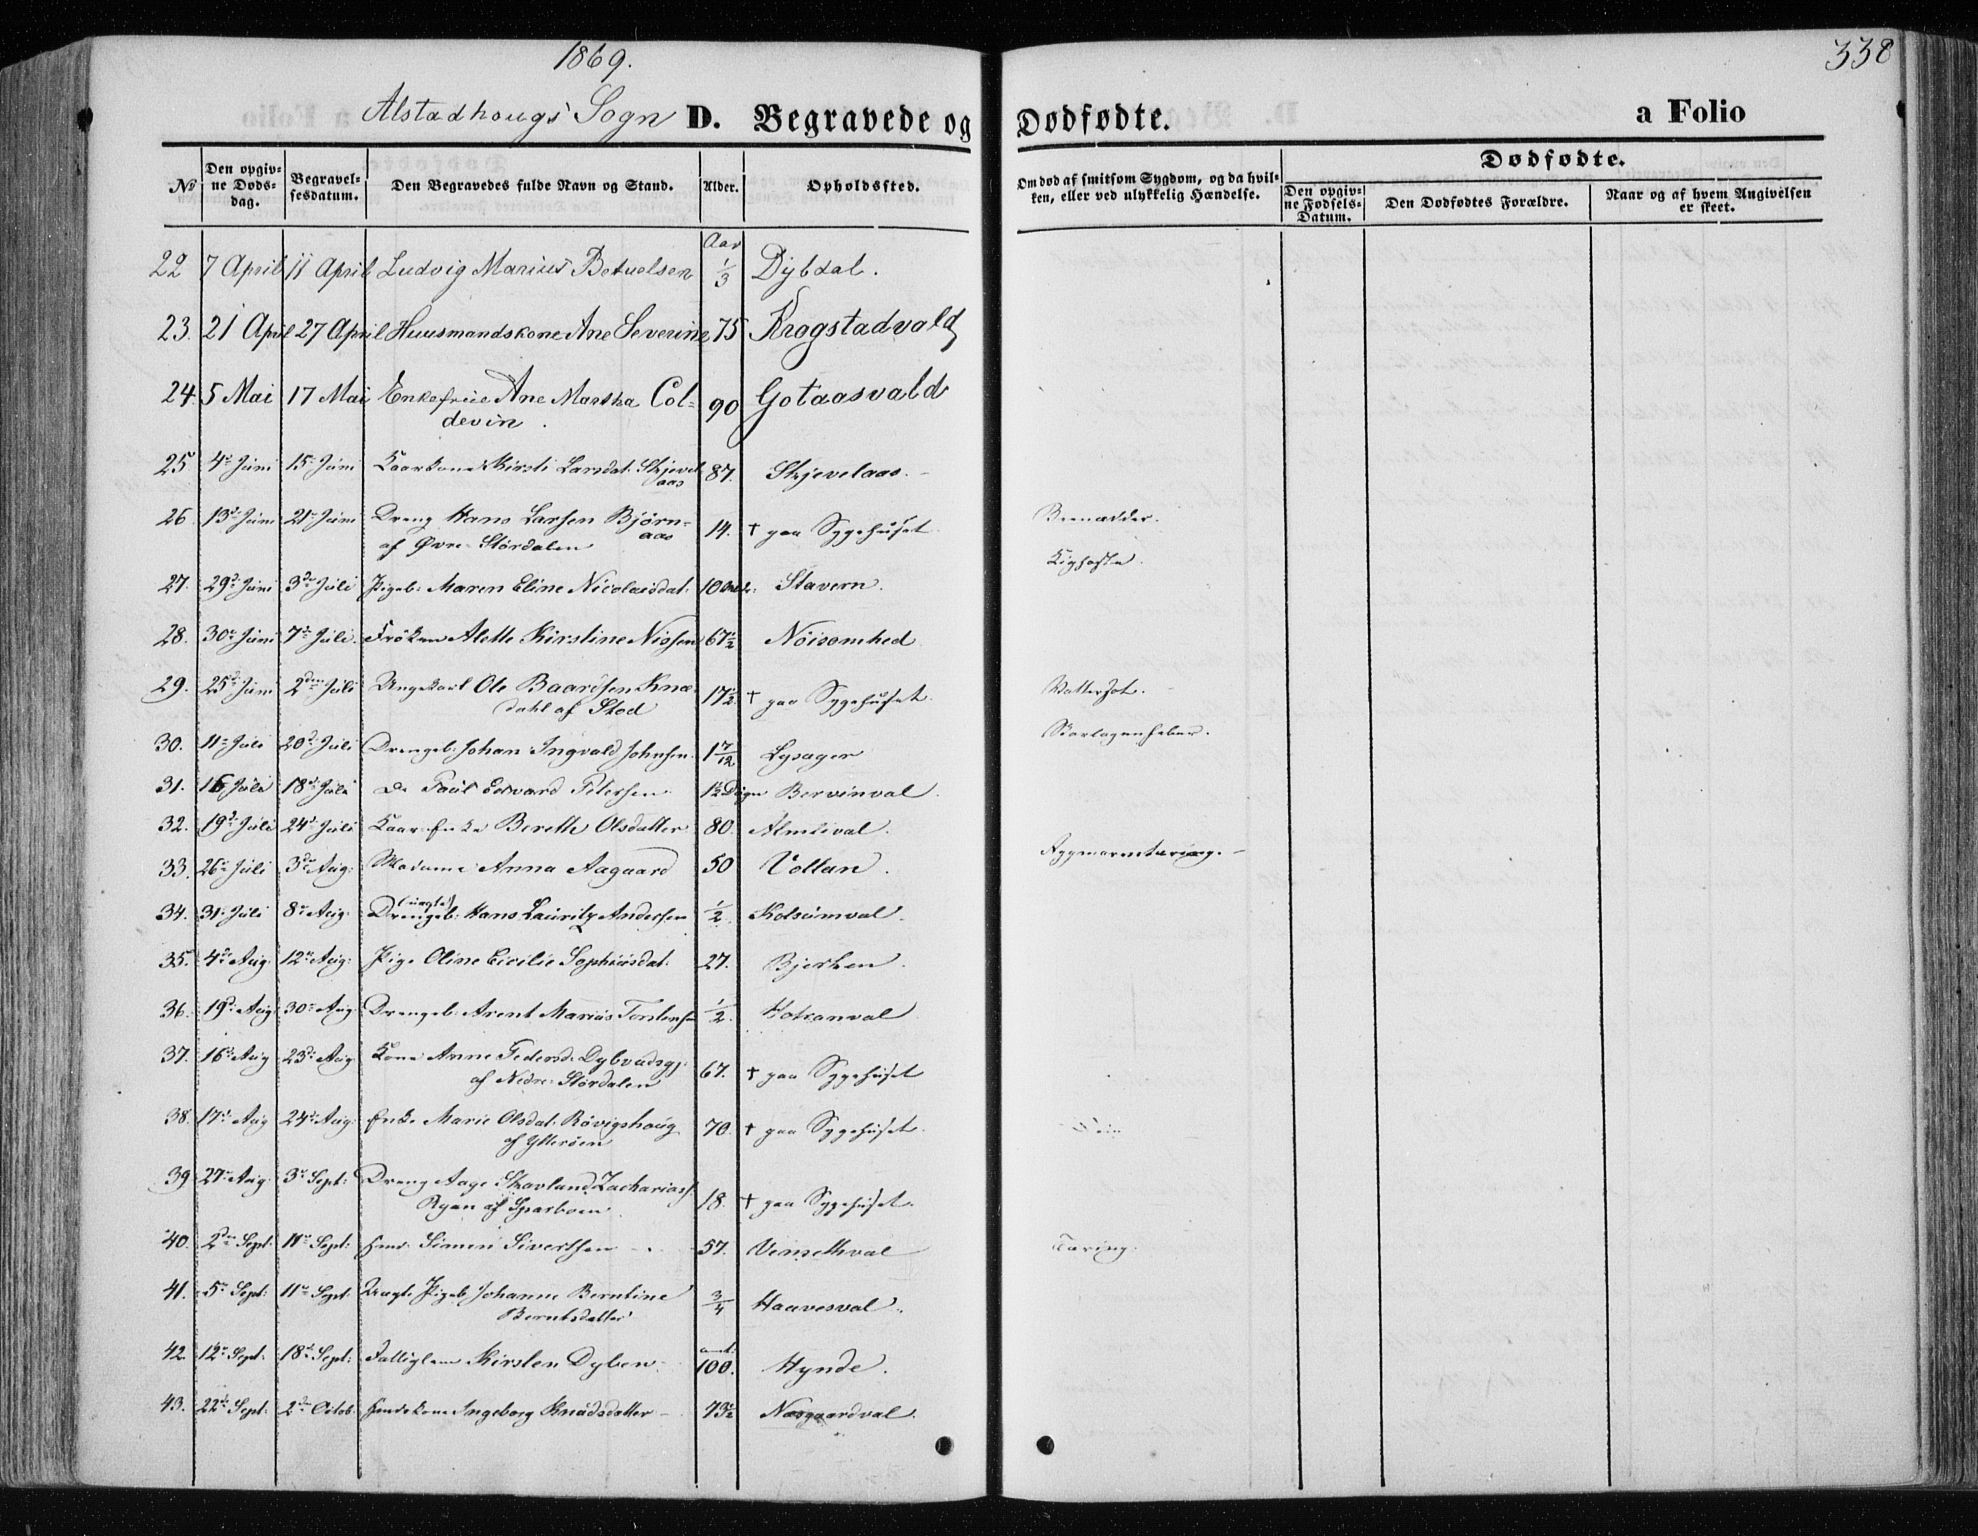 1869.
338
Alstadhougs Sogn D. Begravede og Dødfødte. a Folio
No
Den opgivne Døds-dag.
Begravelsesdatum.
Den Begravedes fulde Navn og Stand.
Alder.
Opholdssted.
Om død af smitsom Sygdom, og da hvilken, eller ved ulykkelig Hændelse.
Dødfødte.
Den opgivne Fødsels-Datum.
Den Dødfødtes Forældre.
Naar og af hvem Angivelsen er skeet.
Aar
22 7 April 11 April Ludvig Marius Betuelsen 1/3 Dybdal.
23. 21 April 27 April Huusmandskone Ane Severine 75 Krogstadvald
24. 5 Mai 17 Mai Enkefrue Ane Martha Col- 90 Gotaasvald
devin.
25 4de Juni 15. Juni Kaarkone Kirsti Larsdat. Skjevel- 87. Skjevelaas.
aas
26. 13de Juni 21de Juni Dreng Hans Larsen Bjørn- 14. † paa Sygehuset Beenedder.
aas
af Øvre Størdalen
27. 29de Juni 3de Juli Pigeb. Maren Eline Nicolaisdat. 10 Stavern. Kighoste.
28. 30te Juni 7de Juli Frøken Alette Kirstine Nissen 67½ Nøisomhed
29. 25de Juni 2den Juli Ungekarl Ole Baardsen Knæ- 17½ † paa Sygehuset. Vattersot.
dahl af Stod
30. 11te Juli 20de Juli Drengeb. Johan Ingvald Johnsen 1 7/12 Lysager Skarlagensfeber.
31. 16 Juli 18de Juli Do Paul Edvard Petersen 1½ Døgn Bervinval.
32. 19de Juli 24de Juli Kaar Enke Berette Olsdatter 80. Almlival.
33. 26de Juli 3de Aug. Madame Anna Aagaard 50 Vollan. Rygmarvstæring.
(uægte)
34. 31. Juli 8de Aug. Drengeb. Hans Lauritz Andersen ½ Kolsumval.
35. 4de Aug. 12te Aug. Pige Oline Cicilie Sophiusdat. 27. Bjerken.
36. 19de Aug. 30te Aug. Drengeb. Arent Marius Torstensen ½ Hotranval
37. 16de Aug 23de Aug. Kone Anne Pedersd. Dybvadsgj. 67. † paa Sygehuset
af Nedre Størdalen
38. 17de Aug 24de Aug. Enke Marie Olsdat. Røvigshoug 70. † paa Sygehuset.
af Ytterøen
39 27de Aug. 3de Sept. Dreng Aage Skavland Zachariass. 18. † paa Sygehuset.
Ryan af Sparboen
40. 2den Sept. 11te Sept. Simen Sivertsen 57. Vinselhval Tæring.
41. 5te Sept. 11te Sept. Uægte Pigeb. Johanne Berntine 3/4 Haavesval.
Berntsdatter
42. 12te Sept. 18de Sept. Fattiglem Kirsten Dyben 100. Hynde.
43. 22de Sept. 2den Octob. Ingeborg Knudsdatter 73½ Norgaardval.